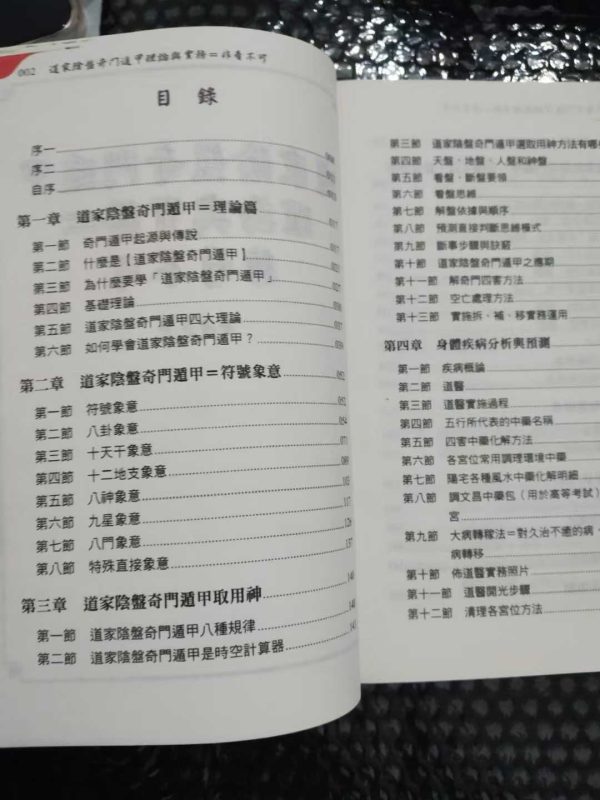 002 道家陰盤奇门遁甲理論與實務=非看不可
目錄
序一
序二
自序
第一章 道家陰盤奇門遁甲=理論篇
第一節 奇門遁甲起源與傳說
第二節 什麼是【道家陰盤奇門遁甲】
第三節 為什麼要學「道家陰盤奇門遁甲」
第四節 基礎理論
第五節 道家陰盤奇門遁甲四大理論
第六節 如何學會道家陰盤奇門遁甲?
第二章 道家陰盤奇門遁甲=符號象意 052
第一節 符號象意 052
第二節 八卦象意 054
第三節 十天干象意 071
第四節 十二地支象意 089
第五節 八神象意 105
第六節 九星象意 117
第七節 八門象意 126
第八節 特殊直接象意 137
第三章 道家陰盤奇門遁甲取用神 140
第一節 道家陰盤奇門遁甲八種規律 140
第二節 道家陰盤奇門遁甲是時空計算器 143
第三節 道家陰盤奇門遁甲選取用神方法有哪
第四節 天盤、地盤、人盤和神盤
第五節 看盤、斷盤要領
第六節 看盤思維
第七節 解盤依據與順序
第八節 預測直接判斷思維模式
第九節 斷事步驟與訣竅
第十節 道家陰盤奇門遁甲之應期
第十一節 解奇門四害方法
第十二節 空亡處理方法
第十三節 實施拆、補、移實務運用
第四章 身體疾病分析與預測
第一節 疾病概論
第二節 道醫
第三節 道醫實施過程
第四節 五行所代表的中藥名稱
第五節 四害中藥化解方法
第六節 各宮位常用調理環境中藥
第七節 陽宅各種風水中藥化解明細
第八節 調文昌中藥包(用於高等考試)
宮
第九節 大病轉稼法=對久治不癒的病,
病轉移
第十節 佈道醫實務照片
第十一節 道醫開光步驟
第十二節 清理各宮位方法